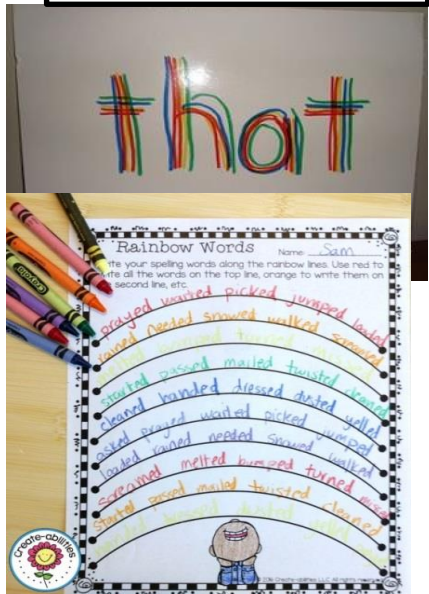 that
Rainbow Words
Name: Sam
te your spelling words along the rainbow lines. Use red to
te all the words on the top line, orange to write them on
second line, etc.
prayed waited picked jumped loaded
rained needed snowed walked screamed
melted bumped turned missed
started passed mailed twisted cleaned
cleaned handed dressed dusted yelled
asked prayed waited picked jumped
loaded rained needed snowed walked
screamed melted bumped turned missed
started passed mailed twisted cleaned
handed dressed dusted yelled
Create-abilities
Create-abilities, LLC All rights reserved